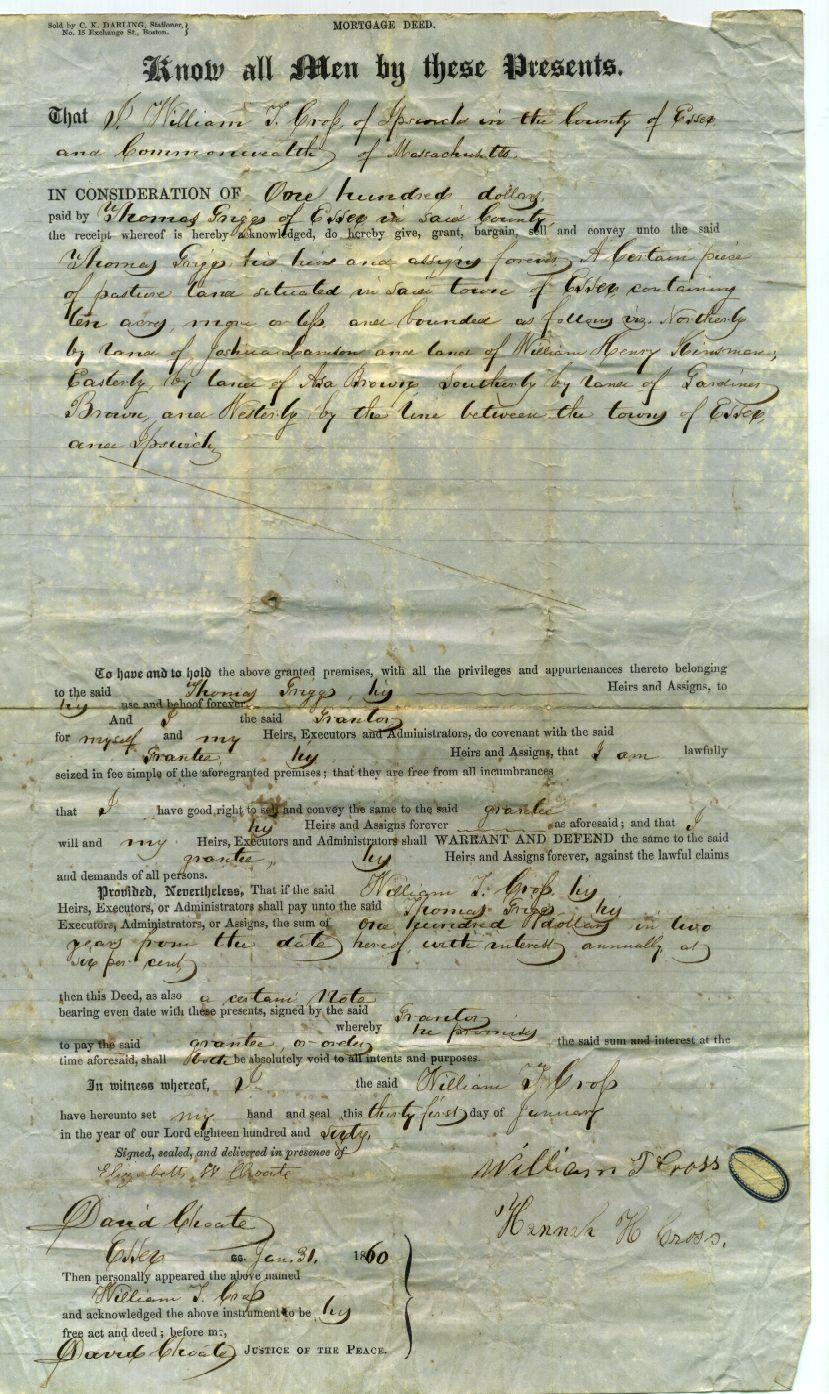 Sold by C. K. DARLING, Stationer,
No. 15 Exchange St., Boston.
MORTGAGE DEED.
Know all Men by these Presents.
That I William T. Cross of Ipswich in the County of Essex
and Commonwealth of Massachusetts
IN CONSIDERATION OF One hundred dollars
paid by Thomas Griggs of Essex in said County,
the receipt whereof is hereby acknowledged, do hereby give, grant, bargain, sell and convey unto the said
Thomas Griggs his heirs and assigns forever, A Certain piece
of pasture land situated in said town of Essex containing
ten acres, more or less and bounded as follows viz. Northerly
by land of Joshua Lamson and land of William Henry Kinsman;
Easterly by land of Asa Brown; Southerly by land of Gardiner
Brown, and Westerly by the line between the towns of Essex,
and Ipswich
To have and to hold the above granted premises, with all the privileges and appurtenances thereto belonging
to the said Thomas Griggs, his Heirs and Assigns, to
his use and behoof forever.
And I the said Grantor
for myself and my Heirs, Executors and Administrators, do covenant with the said
Grantee, his Heirs and Assigns, that I am lawfully
seized in fee simple of the aforegranted premises; that they are free from all incumbrances
that I have good right to sell and convey the same to the said grantee
his Heirs and Assigns forever as aforesaid; and that I
will and my Heirs, Executors and Administrators shall WARRANT AND DEFEND the same to the said
grantee, his Heirs and Assigns forever, against the lawful claims
and demands of all persons.
Provided, Nevertheless, That if the said William T. Cross his
Heirs, Executors, or Administrators shall pay unto the said Thomas Griggs his
Executors, Administrators, or Assigns, the sum of one hundred dollars in two
years from the date hereof, with interest annually at
six per cent
then this Deed, as also a certain Note
bearing even date with these presents, signed by the said Grantor
whereby he promises
to pay the said grantee, or order the said sum and interest at the
time aforesaid, shall both be absolutely void to all intents and purposes.
In witness whereof, I the said William T. Cross
have hereunto set my hand and seal this thirty first day of January
in the year of our Lord eighteen hundred and sixty.
Signed, sealed, and delivered in presence of
Elizabeth W Choate
William T Cross
David Choate
Hannah H Cross.
Essex ss. Jan. 31. 1860
Then personally appeared the above named
William T. Cross
and acknowledged the above instrument to be his
free act and deed; before me,
David Choate JUSTICE OF THE PEACE.